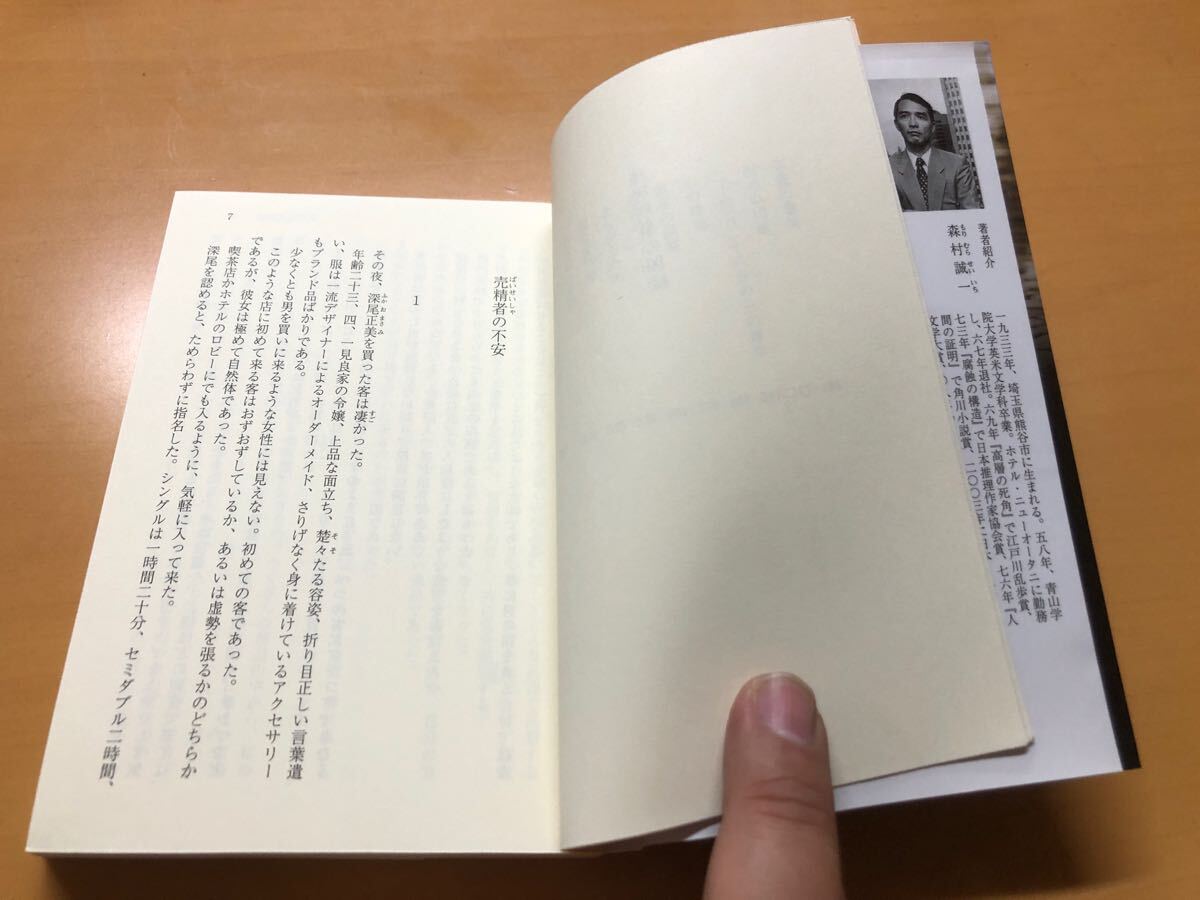 著者紹介
もり むら せい いち
森村誠一
一九三三年、埼玉県熊谷市に生まれる。五八年、青山学
院大学英米文学科卒業。ホテル・ニューオータニに勤務
し、六七年退社。六九年『高層の死角』で江戸川乱歩賞、
七三年『腐蝕の構造』で日本推理作家協会賞、七六年『人
間の証明』で角川小説賞、二〇〇三年
文学大賞、
ばいせいしゃ
売精者の不安
1
ふかおまさみ すご
その夜、深尾正美を買った客は凄かった。
そそ
年齢二十三、四、一見良家の令嬢、上品な面立ち、楚々たる容姿、折り目正しい言葉遣
い、服は一流デザイナーによるオーダーメイド、さりげなく身に着けているアクセサリー
もブランド品ばかりである。
少なくとも男を買いに来るような女性には見えない。初めての客であった。
このような店に初めて来る客はおずおずしているか、あるいは虚勢を張るかのどちらか
であるが、彼女は極めて自然体であった。
喫茶店かホテルのロビーにでも入るように、気軽に入って来た。
深尾を認めると、ためらわずに指名した。シングルは一時間二十分、セミダブル二時間、
7